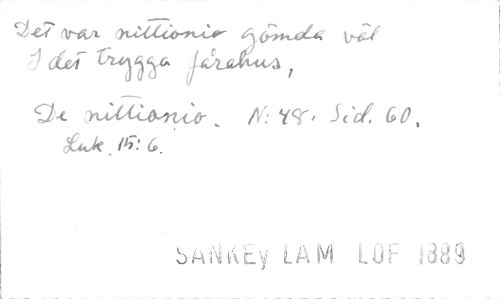 Det var nittionio gömda väl
I det trygga fårahus,
De nittionio. N: 48. Sid. 60.
Luk. 15: 6.
SANKEY LAM LOF 1889